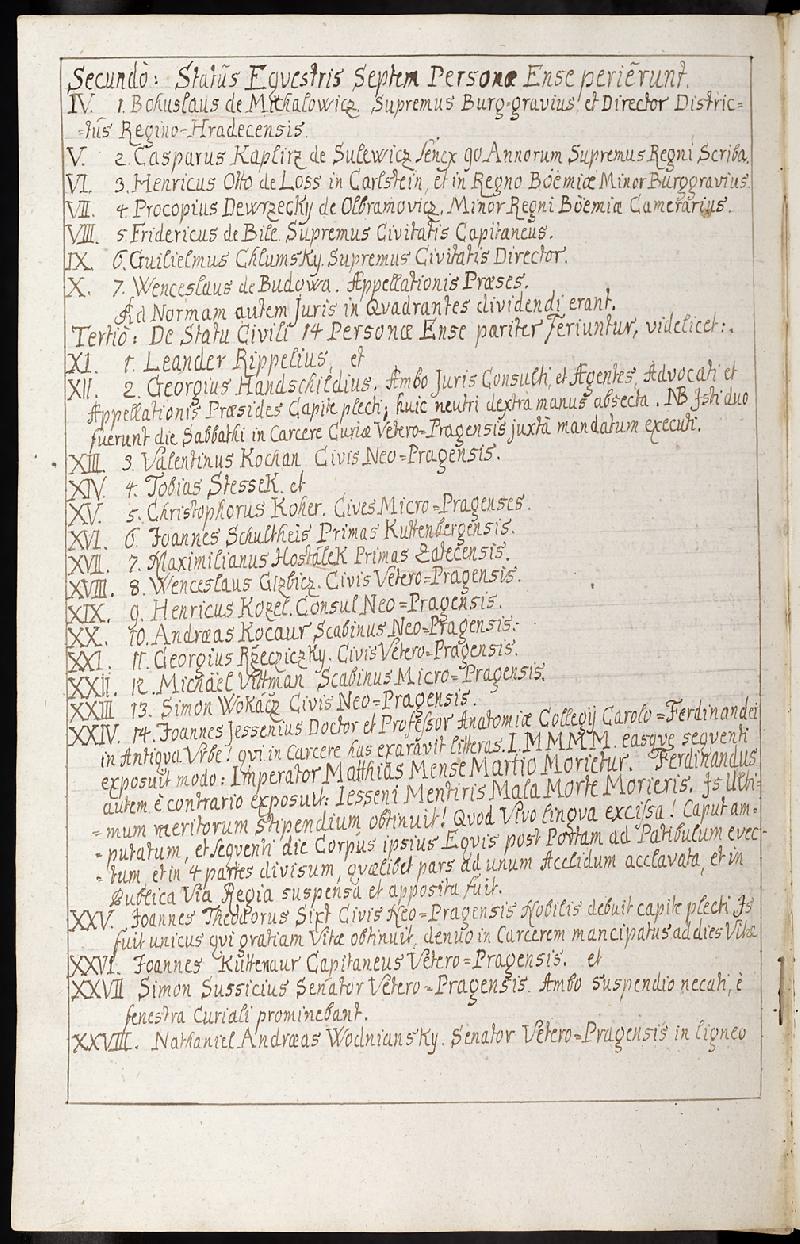 Secundò: Statûs Eqvestris Septem Personæ Ense periêrunt.
IV. 1. Bohuslaus de Michalowicz Supremus Burg-gravius et Director Distric=
=tûs Regino-Hradecensis.
V. 2. Casparus Kaplirz de Sulewicz senex 90 Annorum Supremus Regni Scriba.
VI. 3. Henricus Otto de Loss in Carlstein, et in Regno Böemiæ Minor Burggravius.
VII. 4. Procopius Dewrzecky de Olbramovicz. Minor Regni Böemiæ Camerarius.
VIII. 5 Fridericus de Bile Supremus Civitatis Capitaneus.
IX. 6. Guilielmus Chlumsky. Supremus Civitatis Director.
X. 7. Wenceslaus de Budowa. Appellationis Præses.
Ad Normam autem Juris in Qvadrantes dividendi erant.
Tertiò: De Statu Civili 14 Personæ Ense pariter feriuntur, videlicet:.
XI. 1. Leander Rippelius, et
XII. 2. Georgius Handschildius. Ambo Juris Consulti et Agentes, Advocati et
Appellationis Præsides Capite plecti; huic neutri dextra manus absecta. NB Isti duo
fuerunt die Sabbathi in Carcere Curiæ Vetero-Pragensis juxta mandatum executi.
XIII. 3. Valentinus Kochan Civis Neo=Pragensis.
XIV. 4. Tobias Stessek. et
XV. 5. Christophorus Koher. Cives Micro=Pragenses.
XVI. 6. Joannes Schultheis Primas Kuttenbergensis.
XVII. 7. Maximilianus Hostalek Primas Zatecensis.
XVIII. 8. Wenceslaus Gizbicz. Civis Vetero=Pragensis.
XIX. 9. Henricus Kozel. Consul Neo=Pragensis.
XX. 10. Andræas Kocaur Scabinus Neo=Pragensis.
XXI. 11. Georgius Rzecziczky. Civis Vetero=Pragensis.
XXII. 12. Michaël Vittman Scabinus Micro=Pragensis.
XXIII 13. Simon Wokacz Civis Neo=Pragensis.
XXIV. 14. Joannes Jessenius Doctor et Professor Anatomiæ Collegij Carolo=Ferdinandei
in Antiqva Urbe! qvi in Carcere has exaravit litteras. I. M M M M. easqve seqventi
exposuit modo: Imperator Matthias Mense Martio Morietur. Ferdinandus
autem è contrario exposuit: Iesseni Mentiris Mala Morte Morieris. Is Ulti=
=mum meritorum stipendium obtinuit! Qvod Vivo lingva excissa! Caput am=
=putatum, et seqventi die Corpus ipsius Eqvis post Portam ad Patibulum evec=
=tum, et in 4 partes divisum, qvælibet pars ad unum Acclidum acclavata, et in
Publica Via Regia suspensa et apposita fuit.
XXV. Joannes Theodorus Sixt Civis Neo=Pragensis Nobilis debuit capite plecti Is
fuit unicus qvi gratiam Vitæ obtinuit, denuo in Carcerem mancipatus ad dies Vitæ
XXVI. Joannes Kuttenaur Capitaneus Vetero=Pragensis. et
XXVII Simon Sussicius Senator Vetero=Pragensis. Ambo suspendio necati, è
fenestra Curiali prominebant.
XXVIII. Nathaniel Andræas Wodniansky. Senator Vetero=Pragensis in ligneo